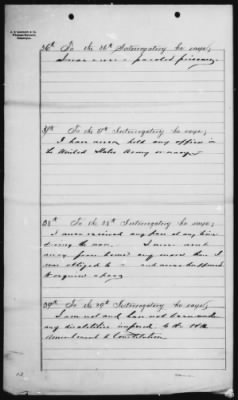 36th To the 36th Interrogatory he says;
I was never a paroled prisoner.
37th To the 37th Interrogatory he says;
I have never held any office in
the United States Army or navy.
38th To the 38th Interrogatory he says;
I never received any pass at any time
during the war. I never went
away from home any more than I
was obliged to - and never
to require a pass
39th To the 39th Interrogatory he says;
I am not and have not been under
any disabilities imposed by the 14th
Amendment to Constitution.